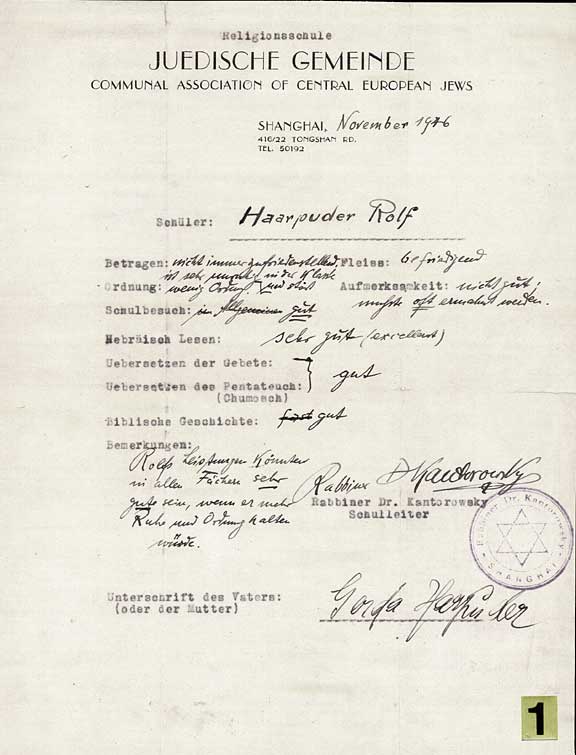 Religionsschule
JUEDISCHE GEMEINDE
COMMUNAL ASSOCIATION OF CENTRAL EUROPEAN JEWS
SHANGHAI, November 1946
416/22 TONGSHAN RD.
TEL. 50192
Schüler: Haarpuder Rolf
Betragen: nicht immer zufriedenstellend, Fleiss: befriedigend
ist sehr in der Klasse
Ordnung: wenig Ordnung und stört Aufmerksamkeit: nicht gut,
musste oft ermahnt werden.
Schulbesuch: im Allgemeinen gut
Hebräisch Lesen: sehr gut (excellent)
Uebersetzen der Gebete:
gut
Uebersetzen des Pentateuch:
(Chumosch)
Biblische Geschichte: fast gut
Bemerkungen:
Rolfs Leistungen könnten
in allen Fächern sehr
gute sein, wenn er mehr
Ruhe und Ordnung halten
würde.
Rabbiner Dr Kantorowsky
Rabbiner Dr. Kantorowsky
Schulleiter
Rabbiner Dr. Kantorowsky
SHANGHAI
Unterschrift des Vaters:
(oder der Mutter)
Haarpuder
1